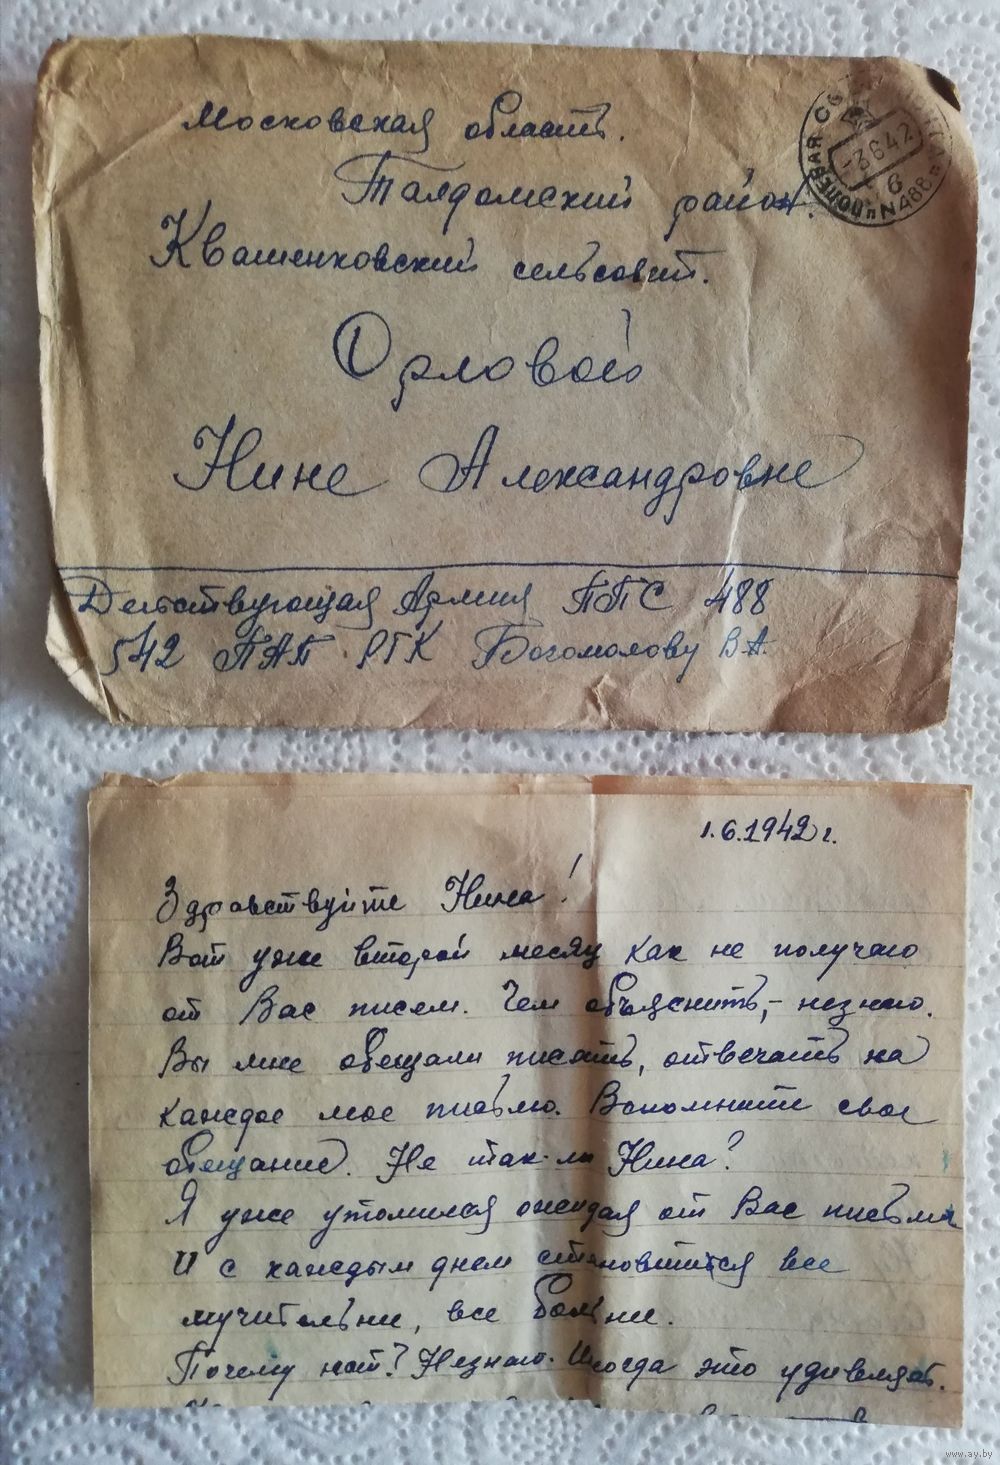 Московская область.
Талдомский район.
Квашенковский сельсовет.
Орловой
Нине Александровне
Действующая Армия ППС 488
542 ПАП РГК Богомолову В А.
ПОЛЕВАЯ
-3 6 42
6
N 488
1.6.1942 г.
Здравствуйте Нина!
Вот уже второй месяц как не получаю
от Вас писем. Чем объяснить, - незнаю.
Вы мне обещали писать, отвечать на
каждое мое письмо. Вспомните свое
обещание. Не так-ли Нина?
Я уже утомился ожидая от Вас письма
и с каждым днем становится все
мучительне, все больне.
Почему нет? Незнаю. Иногда это удивляет.
www.ay.by